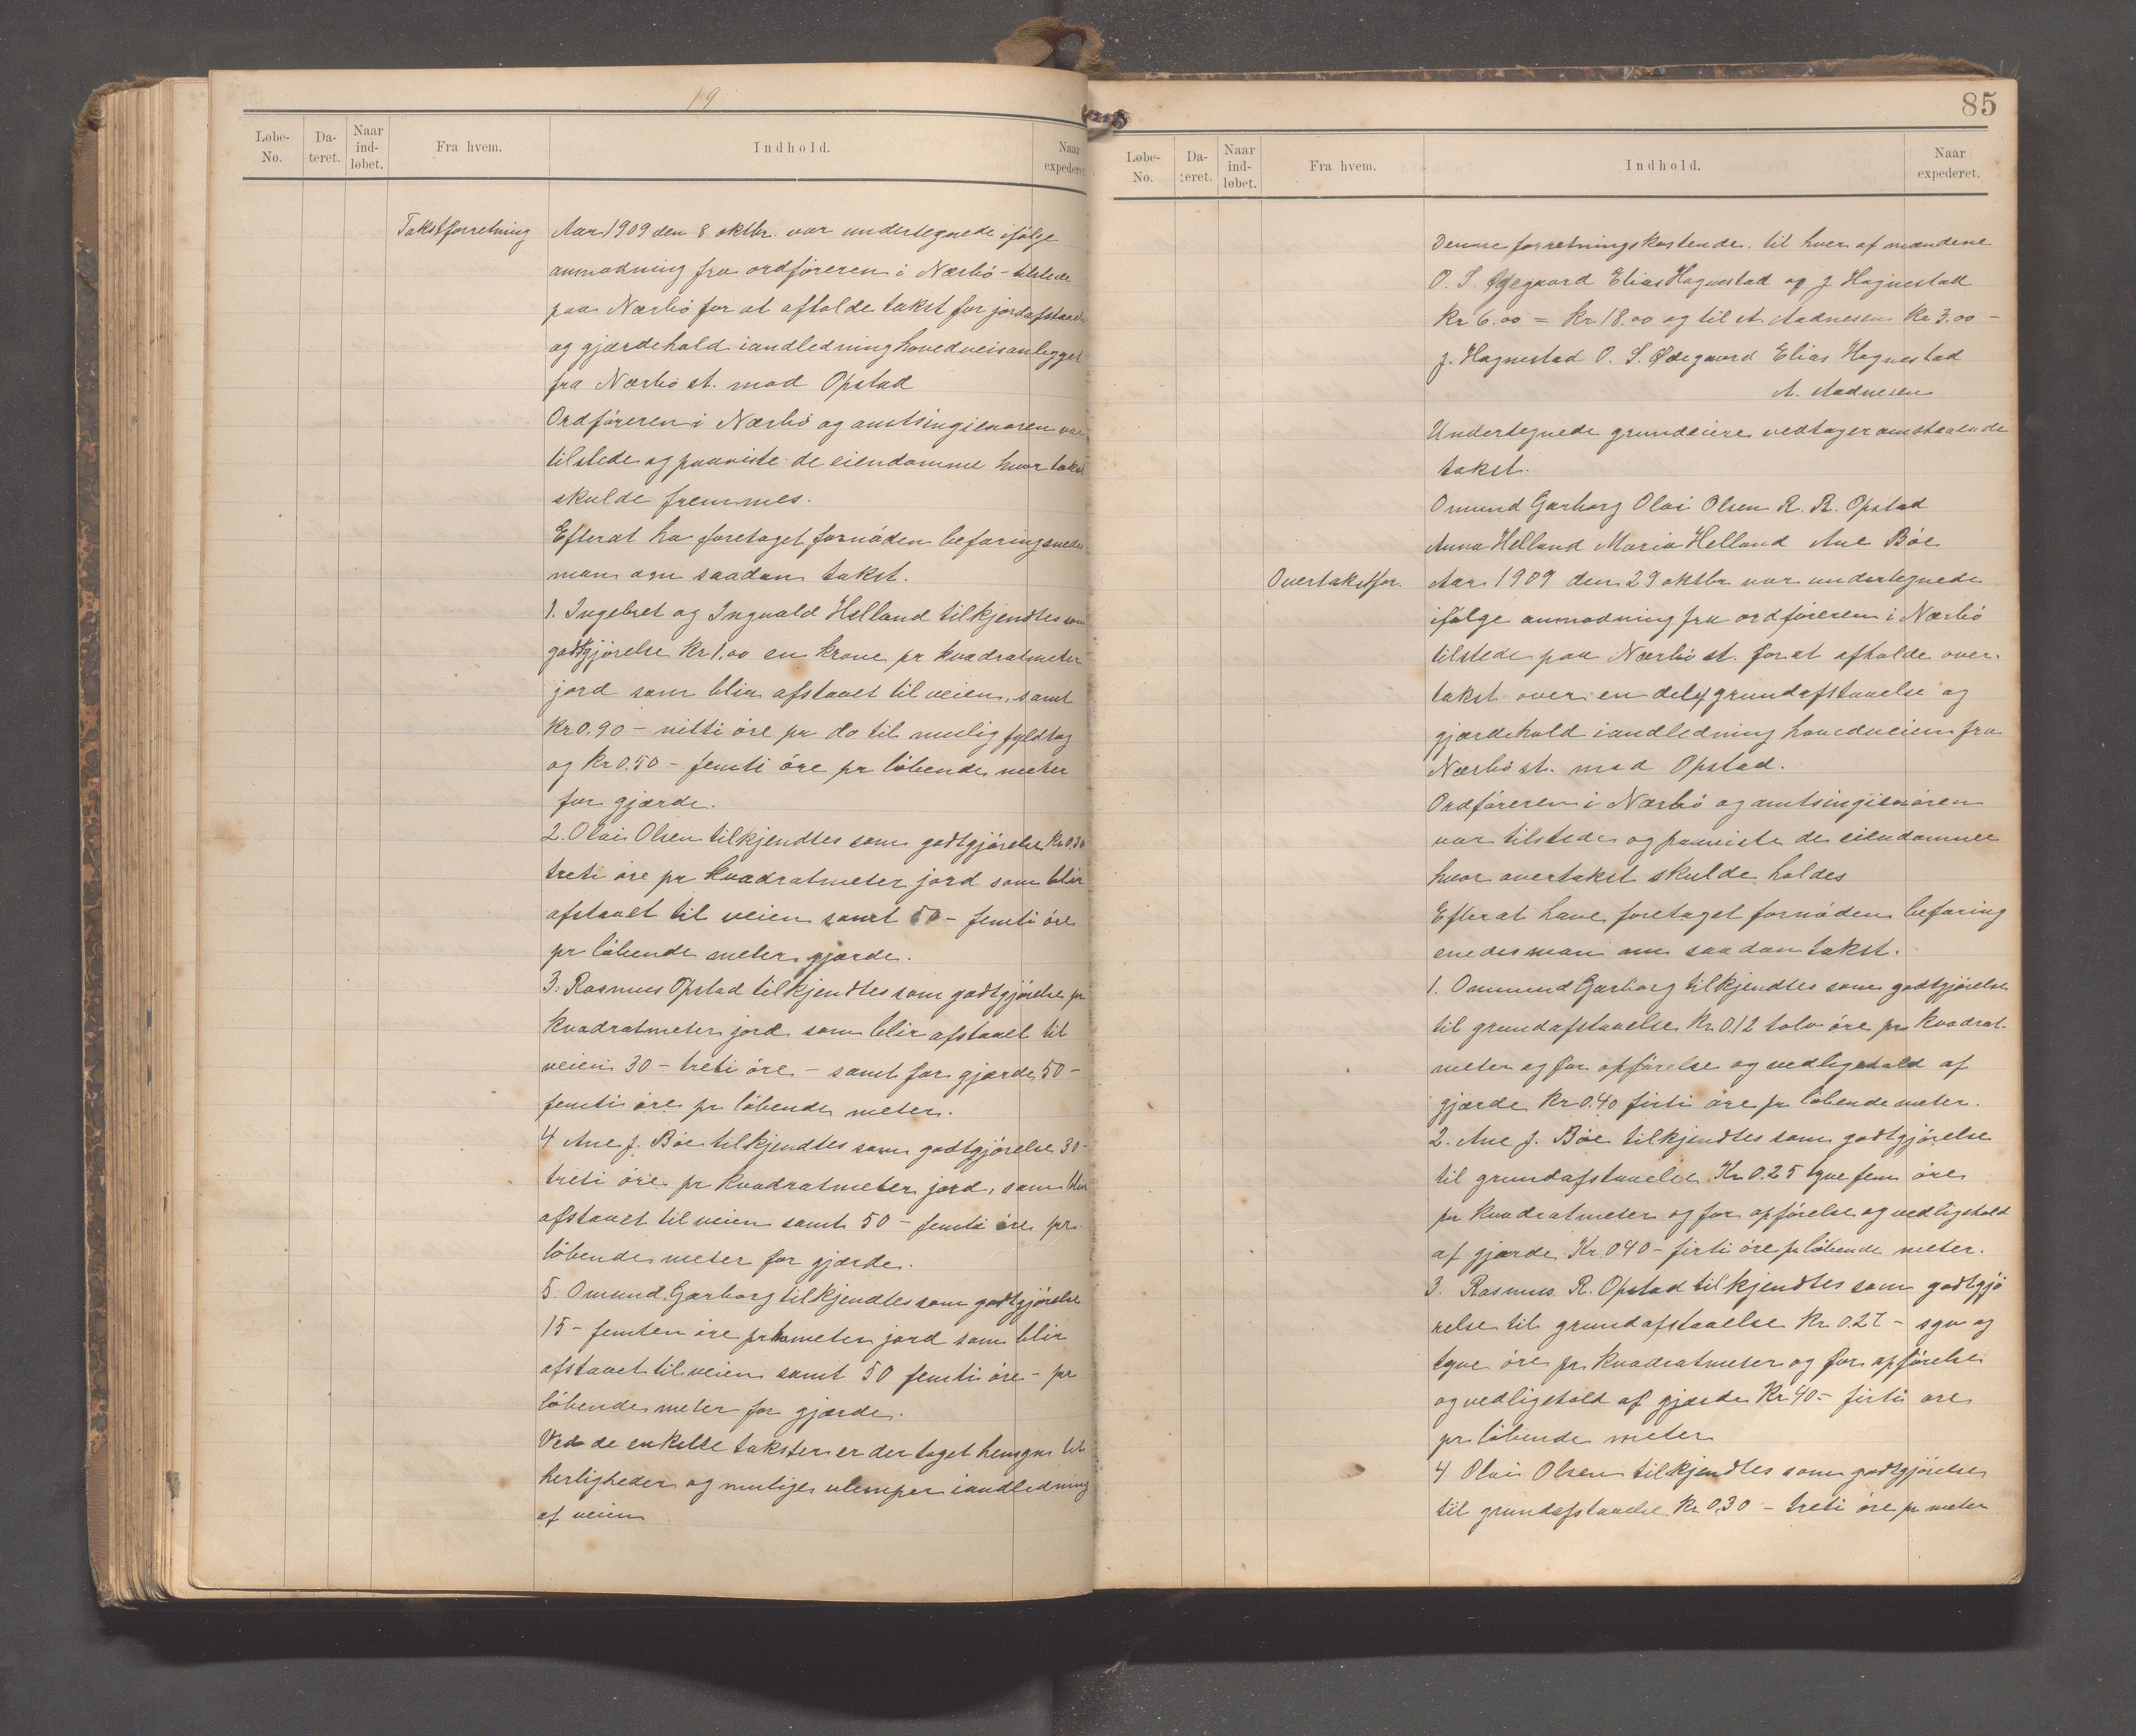 19
Løbe-No.
Da-teret.
Naar ind-løbet.
Fra hvem.
Indhold.
Naar expederet.
Takstforretning
Aar 1909 den 8 oktbr. var undertegnede ifölge
anmodning fra ordföreren i Nærbö - tilstede
paa Nærbö for at afholde takst for jordafstaaelse
og gjærdehold iandledning hovedveisanlegget
fra Nærbö st. mod Opstad
Ordföreren i Nærbö og amtsingieniøren var
tilstede og paaviste de eiendomme hvor takst
skulde fremmes.
Efterat ha foretaget fornöden befaring enedes
man om saadan takst.
1. Ingebret og Ingvald Helland tilkjendtes som
godtgjörelse Kr 1.00 en krone pr kvadratmeter
jord som blir afstaaet til veien, samt
Kr 0.90 - nitti öre pr do til mulig fyldtag
og Kr 0.50 - femti öre pr löbende meter
for gjærde.
2. Olai Olsen tilkjendtes som godtgjörelse Kr 0.30
treti öre pr kvadratmeter jord som blir
afstaaet til veien samt 50 - femti öre
pr löbende meter gjærde.
3. Rasmus Opstad tilkjendtes som godtgjörelse pr
kvadratmeter jord som blir afstaaet til
veien 30 - treti öre - samt for gjærde 50 -
femti öre pr löbende meter.
4 Ane J. Böe tilkjendtes som godtgjörelse 30 -
treti öre pr kvadratmeter jord, som blir
afstaaet til veien samt 50 - femti öre pr
löbende meter for gjærde.
5. Omund Garborg tilkjendtes som godtgjörelse
15 - femten öre pr meter jord som blir
afstaaet til veien samt 50 femti öre - pr
löbende meter for gjærde.
Ved de enkelte takster er der taget hensyn til
herligheder og mulige ulemper iandledning
af veien
85
Løbe-No.
Da-teret.
Naar ind-løbet.
Fra hvem.
Indhold.
Naar expederet.
Denne forretnings kostende til hver af mændene
O. S. Ødegaard Elias Hagnestad og J. Hagnestad
Kr 6.00 = Kr 18.00 og til A. Aadnesen Kr 3.00 -
J. Hagnestad O. S. Ødegaard Elias Hagnestad
A. Aadnesen
Undertegnede grundeiere vedtager omstaaende
takst.
Omund Garborg Olai Olsen R. R. Opstad
Anna Helland Maria Helland Ane Böe
Overtakstfor.
Aar 1909 den 29 oktbr var undertegnede
ifölge anmodning fra ordföreren i Nærbö
tilstede paa Nærbö st. for at afholde over-
takst over en del af grundafstaaelse og
gjærdehold iandledning hovedveien fra
Nærbö st. mod Opstad.
Ordföreren i Nærbö og amtsingieniören
var tilstede og paaviste de eiendomme
hvor overtakst skulde holdes
Efterat have foretaget fornöden befaring
enedes man om saadan takst.
1. Ommund Garborg tilkjendtes som godtgjörelse
til grundafstaaelse Kr 0.12 tolv öre pr kvadrat-
meter og for opförelse og vedligehold af
gjærde Kr 0.40 firti öre pr löbende meter.
2. Ane J. Böe tilkjendtes som godtgjörelse
til grundafstaaelse Kr 0.25 tyve fem öre
pr kvadratmeter og for opförelse og vedligehold
af gjærde Kr 0.40 - firti öre pr löbende meter.
3. Rasmus R. Opstad tilkjendtes som godtgjö
relse til grundafstaaelse Kr 0.27 - syv og
tyve öre pr kvadratmeter og for opförelse
og vedligehold af gjærde Kr 40 - firti öre
pr löbende meter
4 Olai Olsen tilkjendtes som godtgjörelse
til grundafstaaelse Kr 0.30 - treti öre pr meter